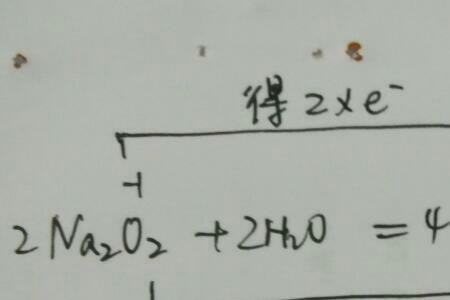 得 2×e⁻
-1
2Na₂O₂ + 2H₂O = 4